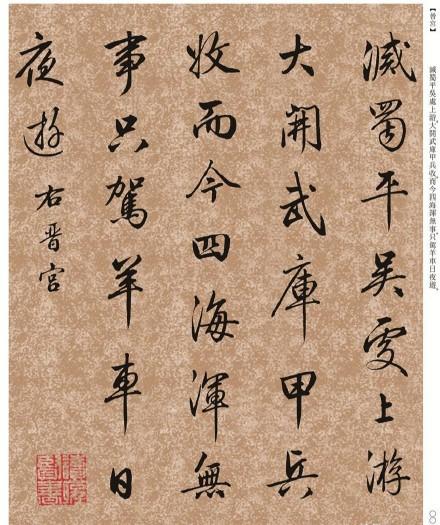 【晉宮】
滅蜀平吳處上游，大開武庫甲兵收。而今四海渾無事，只駕羊車日夜遊。
滅蜀平吳處上游
大開武庫甲兵
收而今四海渾無
事只駕羊車日
夜遊 右晉宮